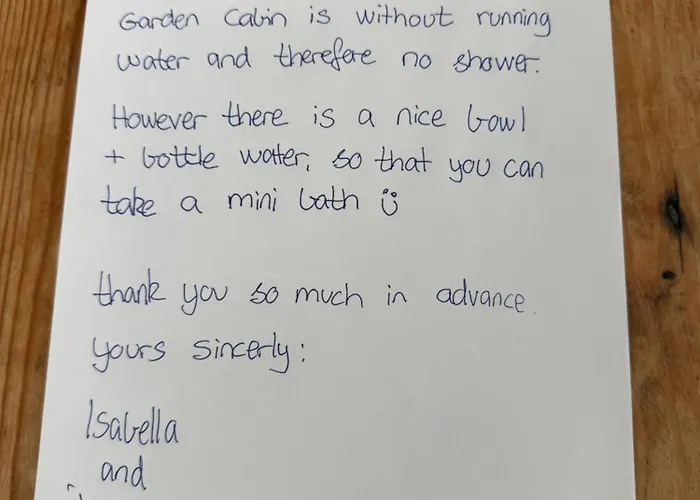 Garden Cabin is without running
water and therefore no shower.
However there is a nice bowl
+ bottle water, so that you can
take a mini bath ☺
thank you so much in advance.
yours sincerly:
Isabella
and